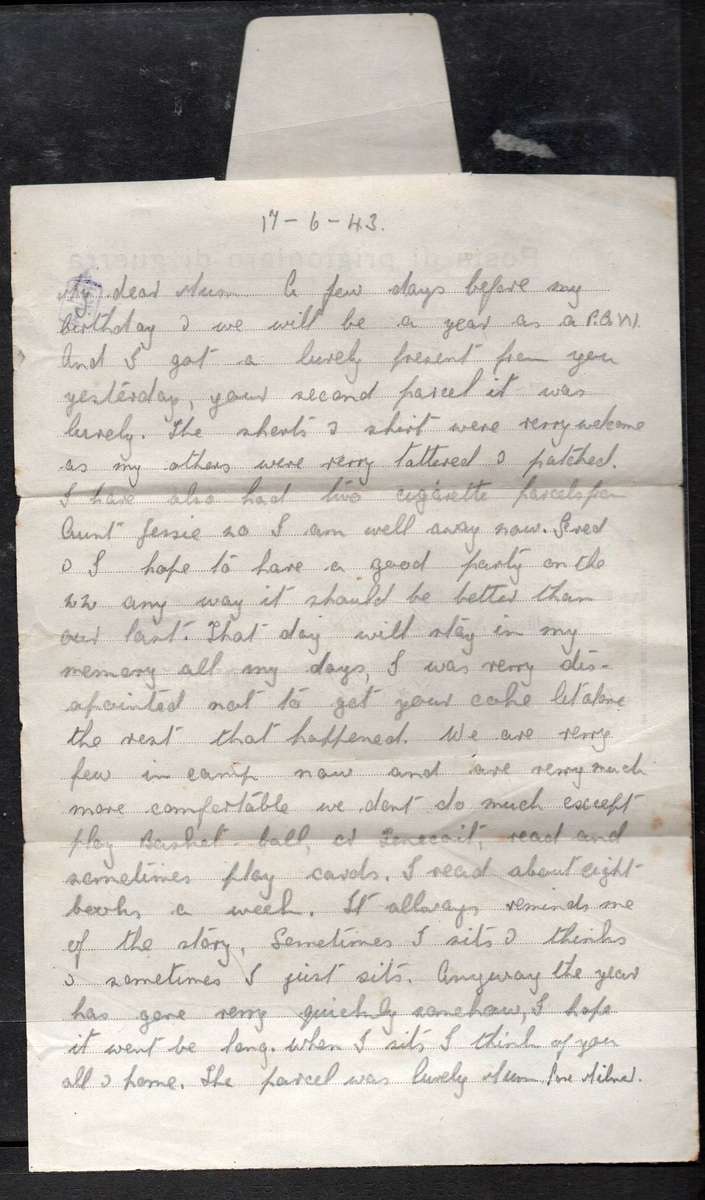 17-6-43.
My dear Mum A few days before my
birthday & we will be a year as a P.O.W.
And I got a lovely present from you
yesterday, your second parcel it was
lovely. The shorts & shirt were verry welcome
as my others were verry tattered & patched.
I have also had two cigarette parcels from
Aunt Jessie so I am well away now. Fred
& I hope to have a good party on the
22 any way it should be better than
our last. That day will stay in my
memory all my days, I was verry dis-
apointed not to get your cake let alone
the rest that happened. We are verry
few in camp now and are verry much
more comfortable we dont do much except
play Basket-ball, or Tenecoit, read and
sometimes play cards. I read about eight
books a week. It allways reminds me
of the story, Sometimes I sits & thinks
& sometimes I just sits. Anyway the year
has gone verry quickly somehow, I hope
it wont be long. when I sits I think of you
all & home. The parcel was lovely Mum